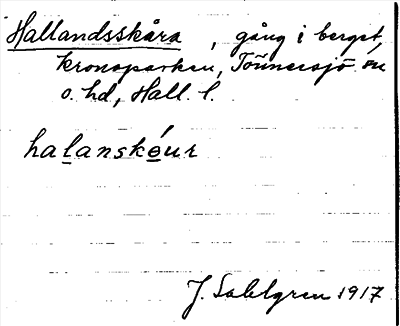 Hallandsskåra, gång i berget,
kronoparken, Tönnersjö sn
o. hd, Hall. l.
halanskǿur
J. Sahlgren 1917